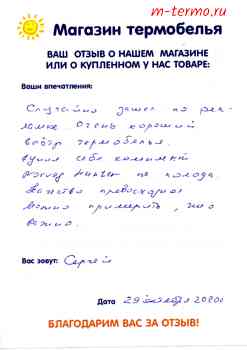 m-termo.ru
Магазин термобелья
ВАШ ОТЗЫВ О НАШЕМ МАГАЗИНЕ
ИЛИ О КУПЛЕННОМ У НАС ТОВАРЕ:
Ваши впечатления:
Случайно зашел по рек-
ламе. Очень хороший
выбор термобелья.
Купил себе комплект
не холода.
Качество превосходное
можно примерить, что
важно.
Вас зовут: Сергей
Дата 29 октября 2020г
БЛАГОДАРИМ ВАС ЗА ОТЗЫВ!